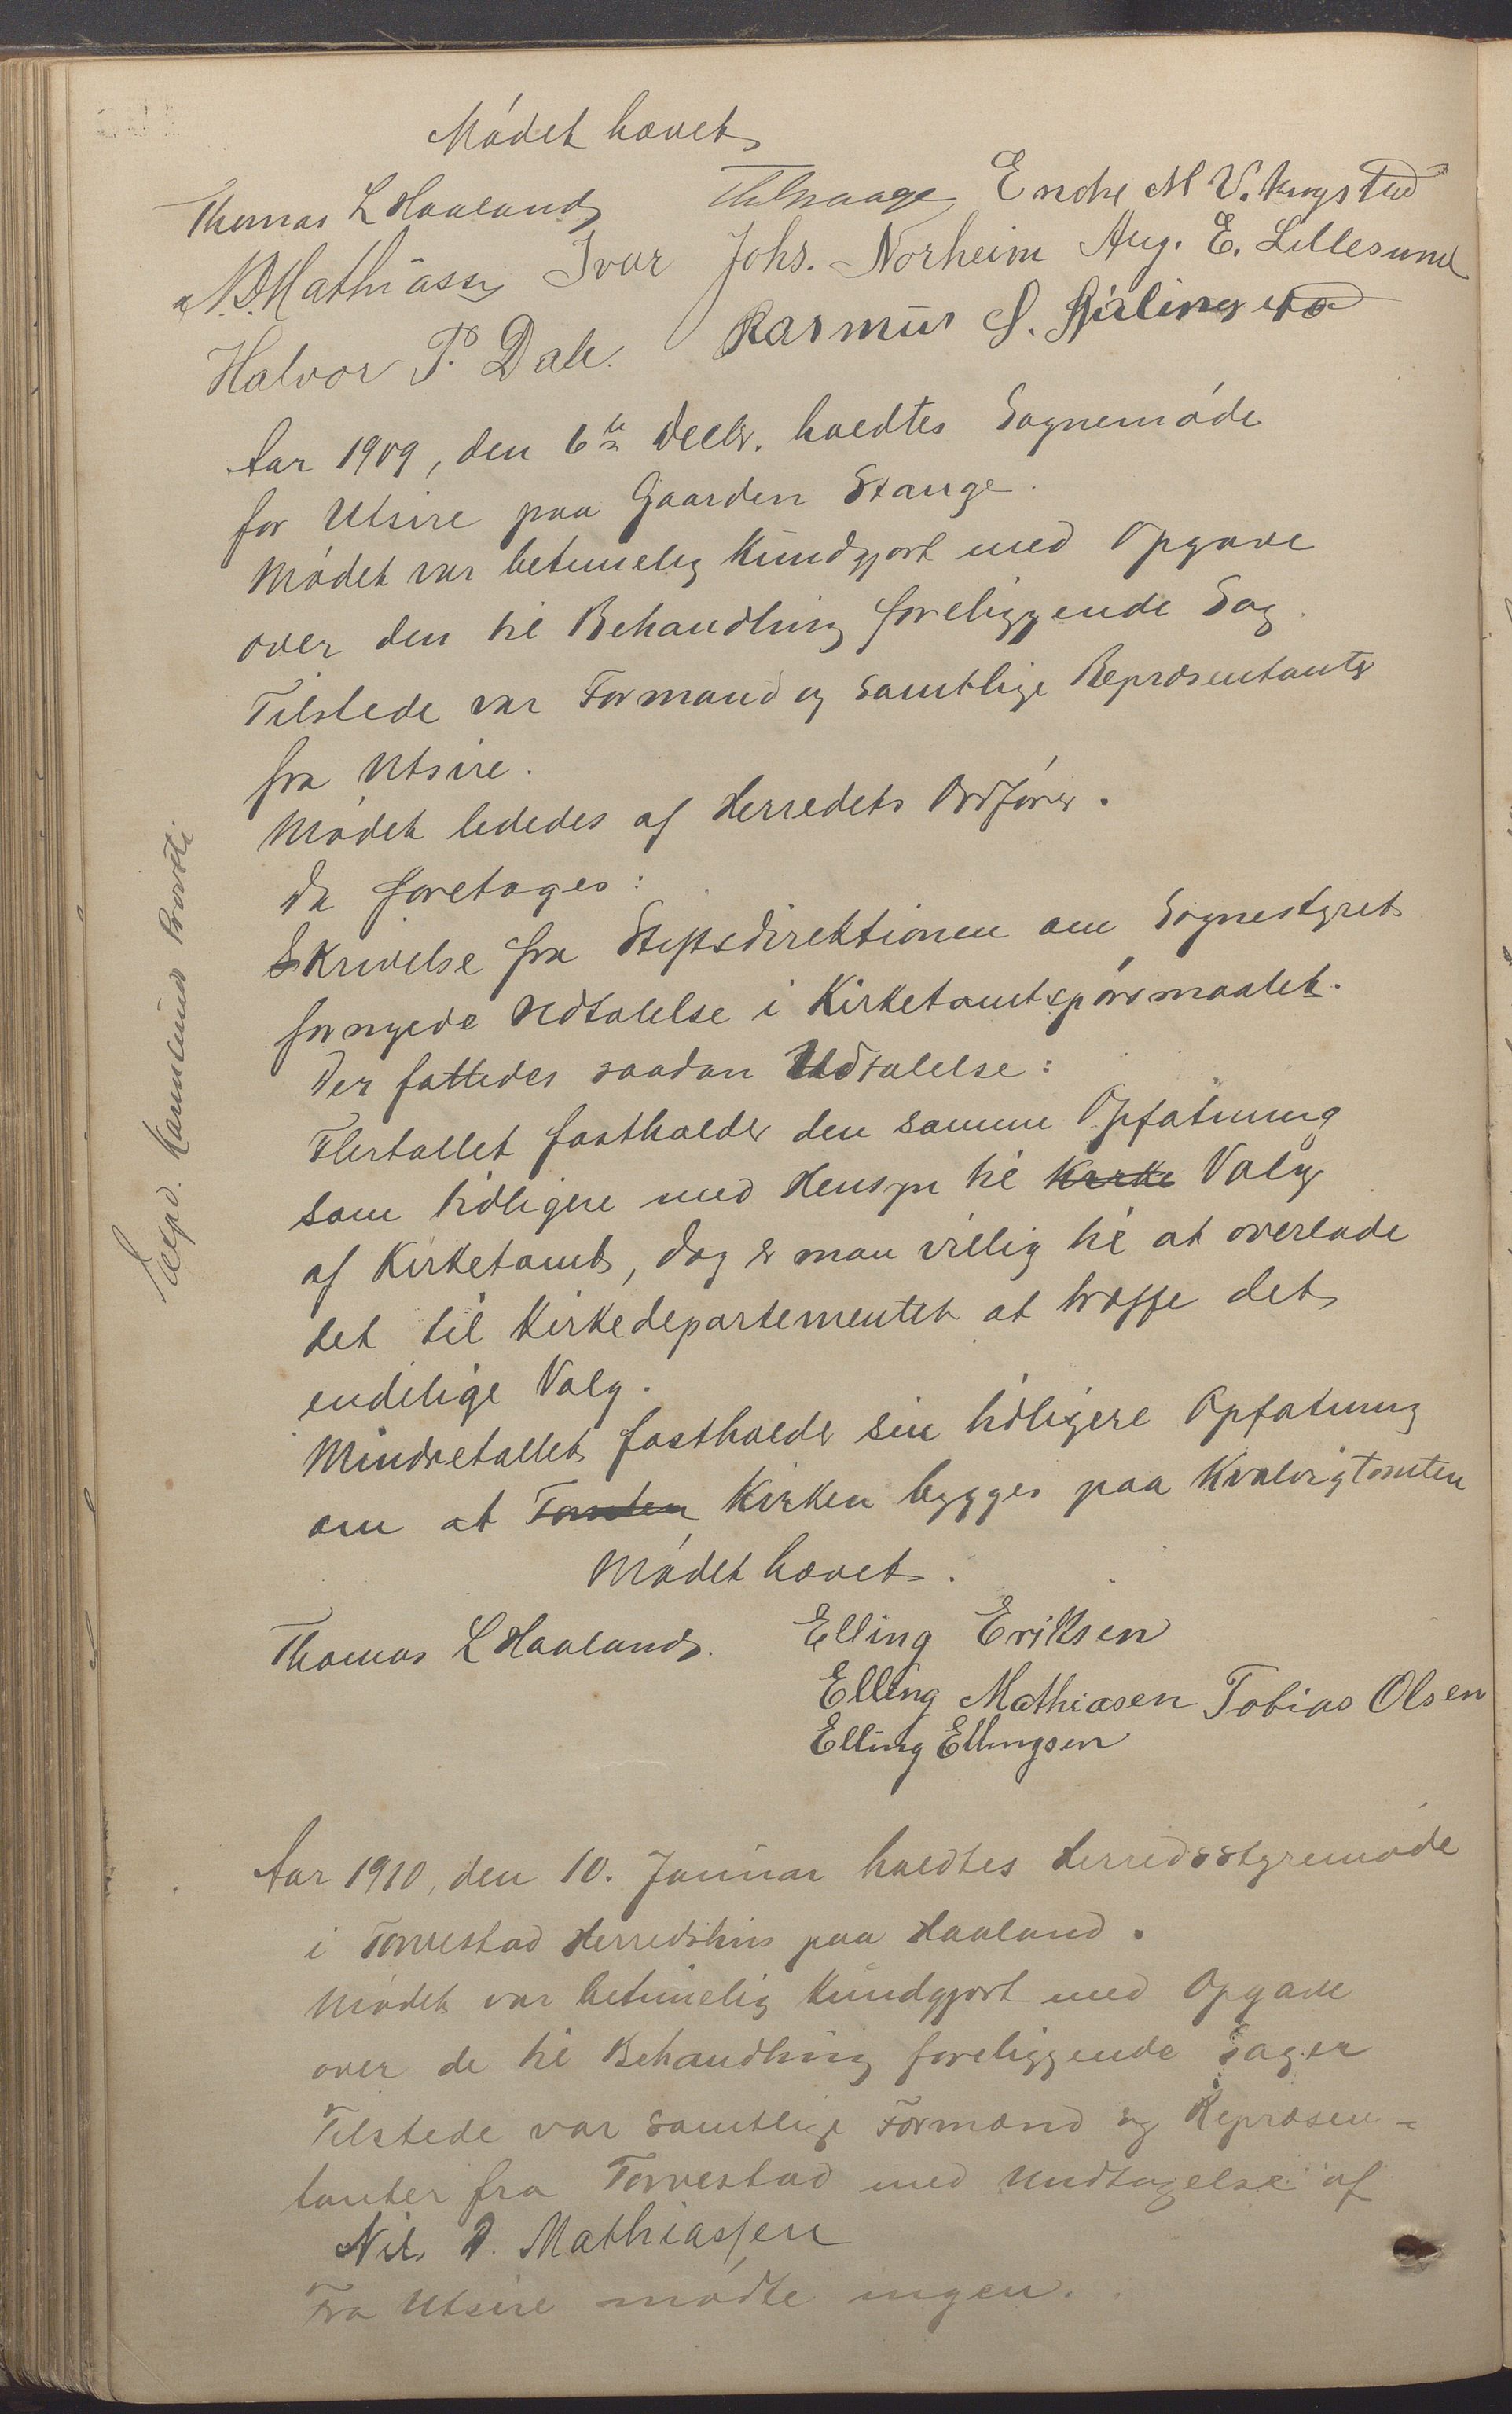 Mödet hævet
Thomas L Haaland Endre M Vikingstad
N. D. Mathiassen Ivar Johs. Norheim Aug. E. Lillesund
Halvor P. Dale. Rasmus S.
Aar 1909, den 6te Decbr. holdtes Sognemöde
for Utsire paa Gaarden Stange.
Mödet var betimelig kundgjort med Opgave
over den til Behandling foreliggende Sag.
Tilstede var Formand og samtlige Repræsentanter
fra Utsire.
Mödet lededes af Herredets Ordförer.
Da foretoges:
Skrivelse fra Stiftsdirektionen om Sognestyrets
fornyede Udtalelse i Kirketomtspörsmaalet.
Der fattedes saadan Udtalelse:
Flertallet fastholder den samme Opfatning
som tidligere med Hensyn til Kirke Valg
af Kirketomt, dog er man villig til at overlade
det til Kirkedepartementet at træffe det
endelige Valg.
Mindretallet fastholder sin tidligere Opfatning
om at Tomten Kirken bygges paa Kvalvigtomten
Mödet hævet.
Thomas L Haaland. Elling Eriksen
Elling Mathiasen Tobias Olsen
Elling Ellingsen
Expd. Karmsund Provsti.
Aar 1910, den 10. Januar holdtes Herredsstyremöde
i Torvestad Herredshus paa Haaland.
Mödet var betimelig kundgjort med Opgave
over de til Behandling foreliggende Sager
Tilstede var samtlige Formænd og Repræsen-
tanter fra Torvestad med Undtagelse af
Nils D. Mathiassen
Fra Utsire mödte ingen.